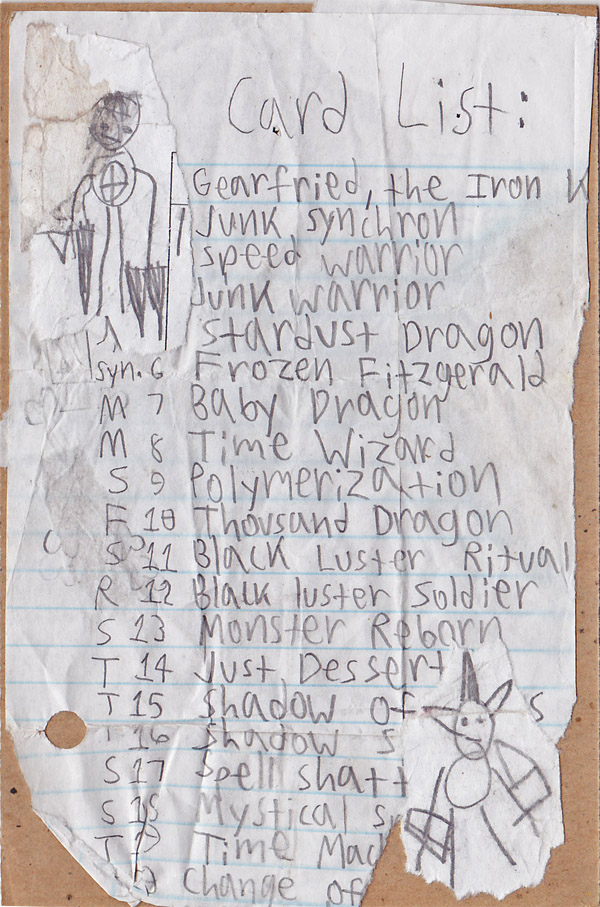 Card List:
Gearfried, the Iron K
Junk synchron
speed warrior
Junk warrior
Stardust Dragon
syn. 6 Frozen Fitzgerald
M 7 Baby Dragon
M 8 Time Wizard
S 9 Polymerization
F 10 Thousand Dragon
S 11 Black Luster Ritual
R 12 Black luster Soldier
S 13 Monster Reborn
T 14 Just Dessert
T 15 Shadow of S
16 Shadow S
S 17 Spell shatt
S 18 Mystical sy
T Time Mac
Change of